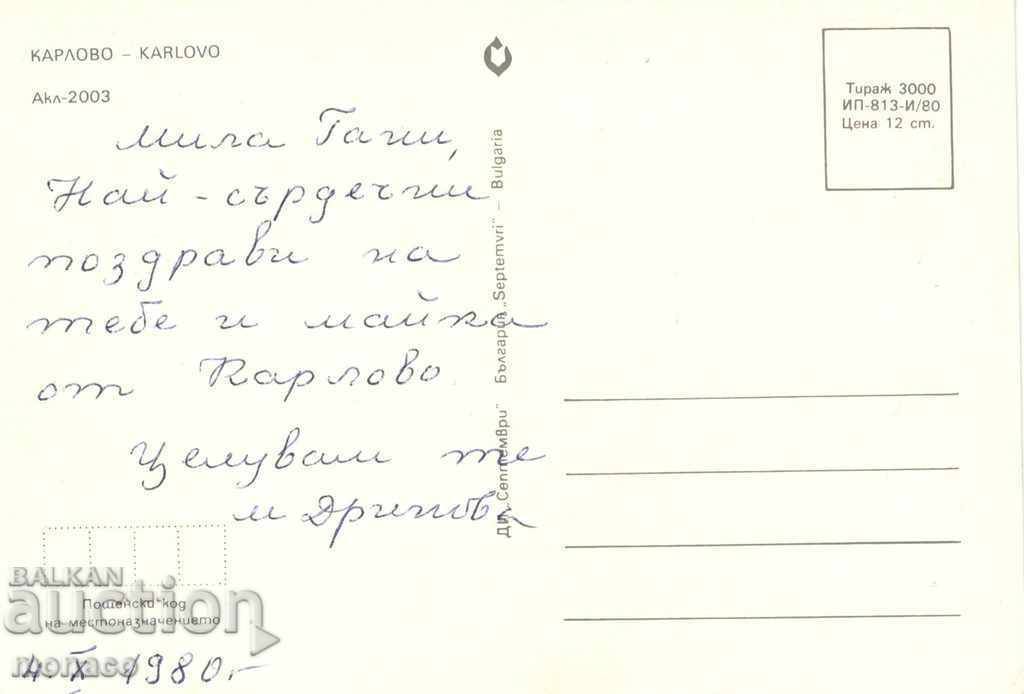 КАРЛОВО – KARLOVO
Акл-2003
Тираж 3000
ИП-813-И/80
Цена 12 ст.
Мила Гани,
Най-сърдечни
поздрави на
тебе и майка
от Карлово
Целувам те
М Дринова
ДИ „Септември" България „Septemvri" – Bulgaria
Пощенски код
на местоназначението
4. X 1980.-
BALKAN
auction
monaco